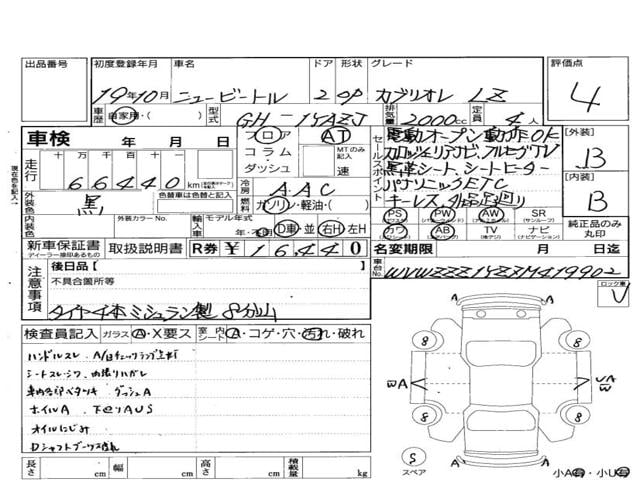 出品番号 初度登録年月 車名 ドア 形状 グレード 評価点
19年10月 ニュービートル 2 OP カブリオレ LZ 4
車歴 自家用・( ) 型式 GH-1YAZJ 排気量 2000cc 定員 4人
車検 年 月 日 フロア AT
コラム・ダッシュ MTのみ記入 速
走行 十万千百十 66440 km
セールスポイント
電動オープン動作OK
カロッツェリアナビ、フルセグTV
黒革シート、シートヒーター
パナソニックETC
キーレス、外品
[外装] B
[内装] B
外装色 黒 色替車は色替と記入
冷房 AAC
燃料 ガソリン・軽油・( )
内装色 外装カラーNo. 輸入車 モデル年式 年・不明 D車・並 右H 左H
PS PW AW SR
カワ AB TV ナビ
純正品のみ丸印
新車保証書 ディーラー捺印あるもの 取扱説明書 R券 ¥16440
名変期限 月 日迄
車台No. WVWZZZ1YZ7M419902
注意事項 後日品[ ]
不具合箇所等
タイヤ4本ミシュラン製 8分山
ロック車 レ
検査員記入 ガラス A・X要ス 室内シート A・コゲ・穴・汚れ・破れ
ハンドルスレ、A/Bチェックランプ点灯
シートスレ・シワ、内張りハガレ
車内各部ベタツキ ダッシュA
ホイルA
オイルにじみ
Dシャフトブーツ
8 8
A A
W W
8 8
スペア
小A有・小U有
長さ cm 幅 cm 高さ cm 積載量 kg